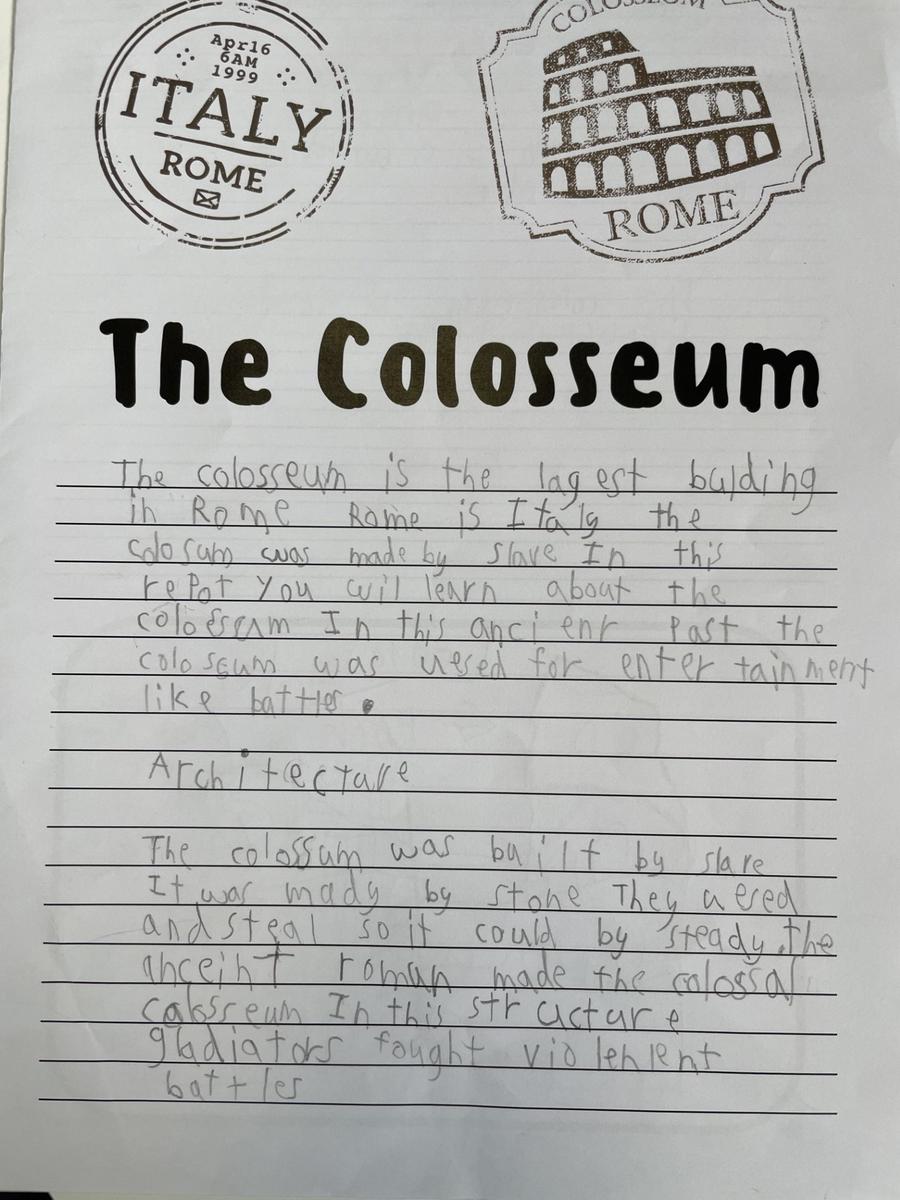 Apr16
6AM
1999
ITALY
ROME
COLOSSEUM
ROME
The Colosseum
The colosseum is the lagest bulding
in Rome Rome is Italy the
colosum was made by slave In this
repot you will learn about the
In this ancienr past the
coloseum was uesed for entertainment
like battles.
Architecture
The colossum was built by slave
It was mady by stone They uesed
and steal so it could by steady.the
anceint roman made the colossal
colosseum In this structure
gladiators fought violenlent
battles